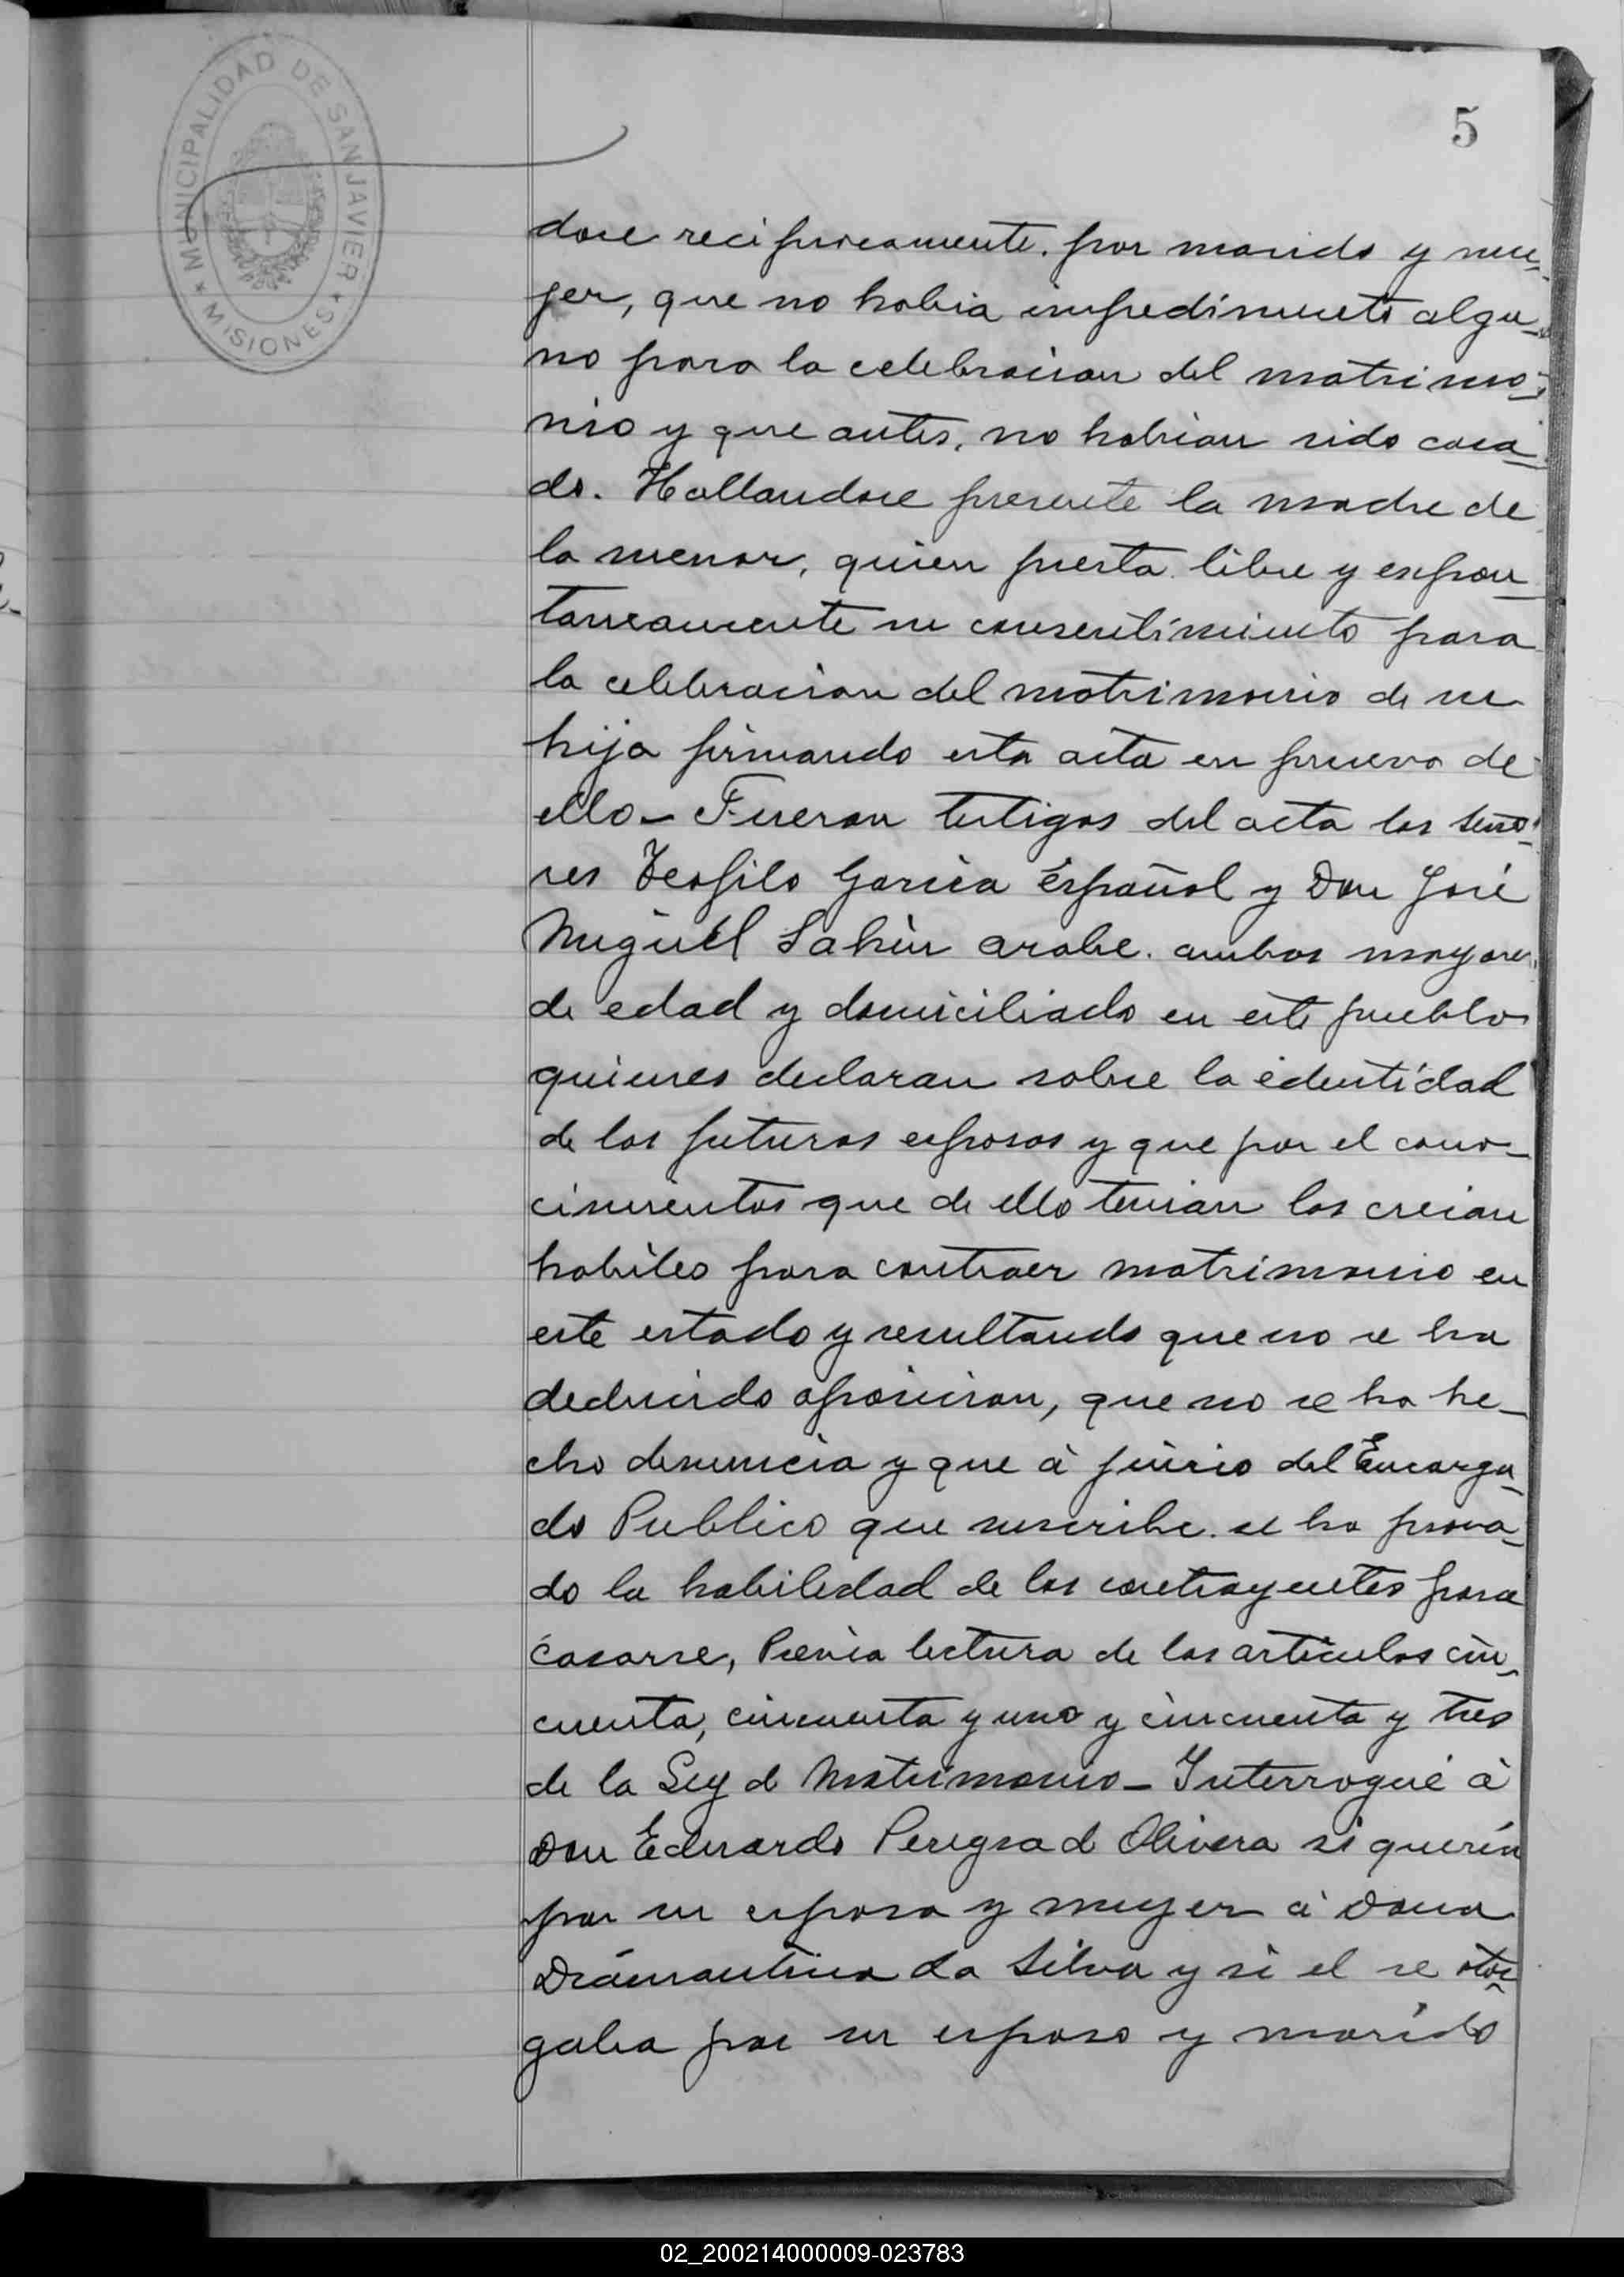 MUNICIPALIDAD DE SAN JAVIER
* MISIONES *
5
dose reciprocamente. por marido y mu-
jer, que no habia impedimento algu-
no para la celebracion del matrimo-
nio y que antes, no habian sido casa-
do. Hallandose presente la madre de
la menor, quien presta libre y espon-
taneamente su consentimiento para
la celebracion del matrimonio de su
hija firmando esta acta en prueva de
ello - Fueron testigos del acta los seño-
res Teofilo Garcia Español y Don José
Miguel Sahin arabe. ambos mayores
de edad y domiciliado en este pueblo
quienes declaran sobre la edentidad
de los futuros esposos y que por el cono-
cimientos que de ello tenian los creian
habiles para contraer matrimonio en
este estado y resultando que no se ha
deducido oposicion, que no se ha he-
cho denuncia y que à juicio del Encarga-
do Publico que suscribe. se ha prova-
do la habiledad de los contrayentes para
casarse, Previa lectura de los articulos cin-
cuenta, cincuenta y uno y cincuenta y tres
de la Ley d Matrimonio - Interrogué à
Don Eduardo Peregra d Olivera si querìa
por su esposa y muger à Dona
Diamantina da Silva y si el se otor-
gaba por su esposo y marido
02_200214000009-023783